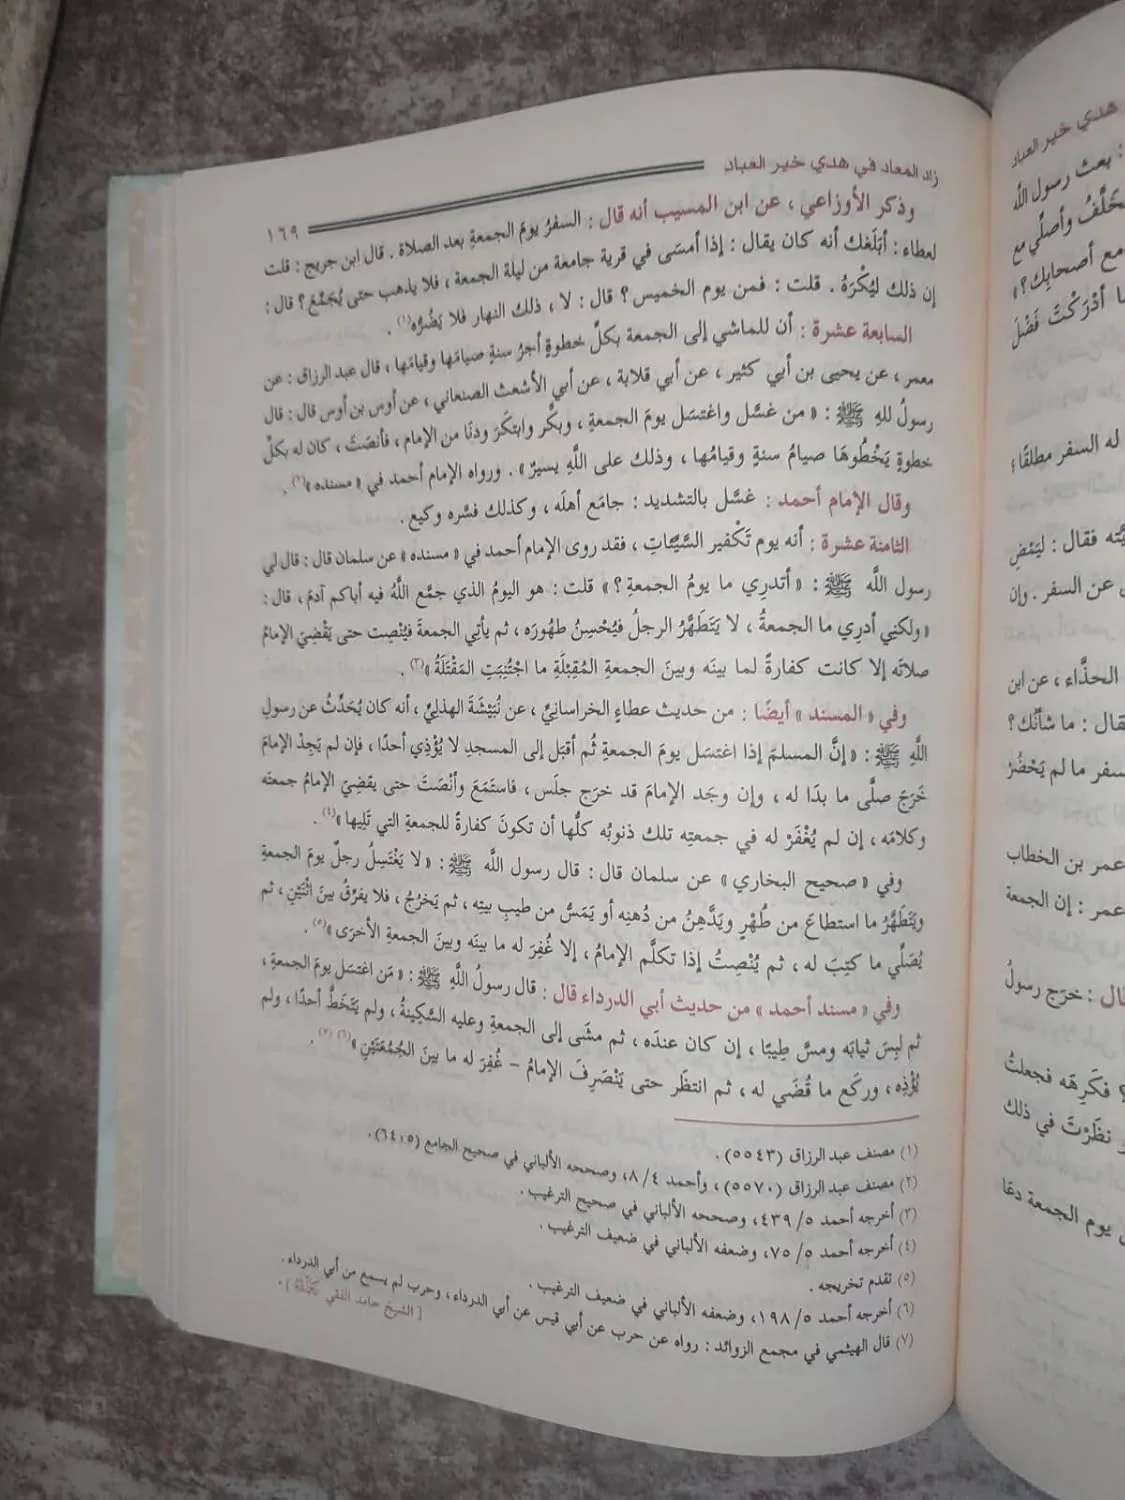 زاد المعاد في هدي خير العباد
١٦٩
وذكر الأوزاعي ، عن ابن المسيب أنه قال : السفرُ يومَ الجمعةِ بعد الصلاة . قال ابن جريج : قلت
لعطاء : أبَلَغك أنه كان يقال : إذا أمسَى في قرية جامعة من ليلة الجمعة ، فلا يذهب حتى يُجَمِّعَ ؟ قال :
إن ذلك ليُكْرَهُ . قلت : فمن يوم الخميس ؟ قال : لا ، ذلك النهار فلا يَضُرُّه(١) .
السابعة عشرة : أن للماشي إلى الجمعة بكلِّ خطوةٍ أجرُ سنةٍ صيامُها وقيامُها ، قال عبد الرزاق : عن
معمر ، عن يحيى بن أبي كثير ، عن أبي قلابة ، عن أبي الأشعث الصنعاني ، عن أوس بن أوس قال : قال
رسولُ للهِ ﷺ : « من غسَّل واغتسَل يومَ الجمعةِ ، وبكَّر وابتكَرَ ودنَا من الإمامِ ، فأنصَتَ ، كان له بكلِّ
خطوةٍ يَخْطُوهَا صيامُ سنةٍ وقيامُها ، وذلك على اللَّهِ يسيرٌ » . ورواه الإمام أحمد في « مسنده »(٢) .
وقال الإمام أحمد : غسَّل بالتشديد : جامَع أهلَه ، وكذلك فسَّره وكيع .
الثامنة عشرة : أنه يوم تَكْفير السَّيِّئاتِ ، فقد روى الإمام أحمد في « مسنده » عن سلمان قال : قال لي
رسول اللَّه ﷺ : « أتدرِي ما يومُ الجمعةِ ؟ » قلت : هو اليومُ الذي جمَّع اللَّهُ فيه أباكم آدمَ ، قال :
« ولكنِي أدرِي ما الجمعةُ ، لا يَتَطَهَّرُ الرجلُ فيُحْسِنُ طهُورَه ، ثم يأتِي الجمعةَ فيُنْصِت حتى يَقْضِيَ الإمامُ
صلاتَه إلا كانت كفارةً لما بينَه وبينَ الجمعةِ المُقبِلَةِ ما اجْتُنِبَتِ المَقْتَلَةُ »(٣) .
وفي « المسند » أيضًا : من حديث عطاءٍ الخراسانيِّ ، عن نُبَيْشَةَ الهذليِّ ، أنه كان يُحَدِّثُ عن رسولِ
اللَّهِ ﷺ : « إنَّ المسلمَ إذا اغتسَل يومَ الجمعةِ ثُم أقبَل إلى المسجدِ لا يُؤْذِي أحدًا ، فإن لم يَجِدْ الإمامَ
خَرَجَ صلَّى ما بدَا له ، وإن وجَد الإمامَ قد خرَج جلَس ، فاستَمَعَ وأنْصَتَ حتى يقضِيَ الإمامُ جمعتَه
وكلامَه ، إن لم يُغْفَرْ له في جمعتِه تلك ذنوبُه كلُّها أن تكونَ كفارةً للجمعةِ التي تَلِيها »(٤) .
وفي « صحيح البخاري » عن سلمان قال : قال رسول اللَّه ﷺ : « لا يَغْتَسِلُ رجلٌ يومَ الجمعةِ
ويَتَطَهَّرُ ما استطاعَ من طُهْرٍ ويَدَّهِنُ من دُهنِه أو يَمَسُّ من طيبِ بيتِه ، ثم يَخرُجُ ، فلا يفرِّقُ بينَ اثْنَيْنِ ، ثم
يُصَلِّي ما كتِبَ له ، ثم يُنْصِتُ إذا تكلَّم الإمامُ ، إلا غُفِرَ له ما بينَه وبينَ الجمعةِ الأخرَى »(٥) .
وفي « مسند أحمد » من حديث أبي الدرداء قال : قال رسولُ اللَّهِ ﷺ : « مَن اغتسَل يومَ الجمعةِ ،
ثم لبِسَ ثيابَه ومسَّ طِيبًا ، إن كان عندَه ، ثم مشَى إلى الجمعةِ وعليه السَّكِينةُ ، ولم يَتَخَطَّ أحدًا ، ولم
يُؤْذِه ، وركَع ما قُضَي له ، ثم انتظَر حتى يَنْصَرِفَ الإمامُ – غُفِرَ له ما بينَ الجُمُعَتَيْنِ »(٦) (٧) .
(١) مصنف عبد الرزاق (٥٥٤٣) .
(٢) مصنف عبد الرزاق (٥٥٧٠) ، وأحمد ٤/ ٨، وصححه الألباني في صحيح الجامع (٦٤٠٥) .
(٣) أخرجه أحمد ٥/ ٤٣٩، وصححه الألباني في صحيح الترغيب .
(٤) أخرجه أحمد ٥/ ٧٥، وضعفه الألباني في ضعيف الترغيب .
(٥) تقدم تخريجه .
(٦) أخرجه أحمد ٥/ ١٩٨، وضعفه الألباني في ضعيف الترغيب .
(٧) قال الهيثمي في مجمع الزوائد : رواه عن حرب عن أبي قيس عن أبي الدرداء ، وحرب لم يسمع من أبي الدرداء .
[ الشيخ حامد الفقي ] .
هدي خير العباد
: بعث رسول اللَّه
أتخَلَّفُ وأصلِّي مع
مع أصحابِك ؟ »
ما أدْرَكْتَ فَضْلَ
له السفر مطلقًا ؛
فقال : ليَمْضِ
عن السفر . وإن
الحذَّاء ، عن ابن
قال : ما شأنُك ؟
ما لم يَحْضُرْ
عمر بن الخطاب
عمر : إن الجمعة
قال : خرَج رسولُ
؟ فكَرِهَه فجعلتُ
نظَرْتَ في ذلك
يوم الجمعة دعَا